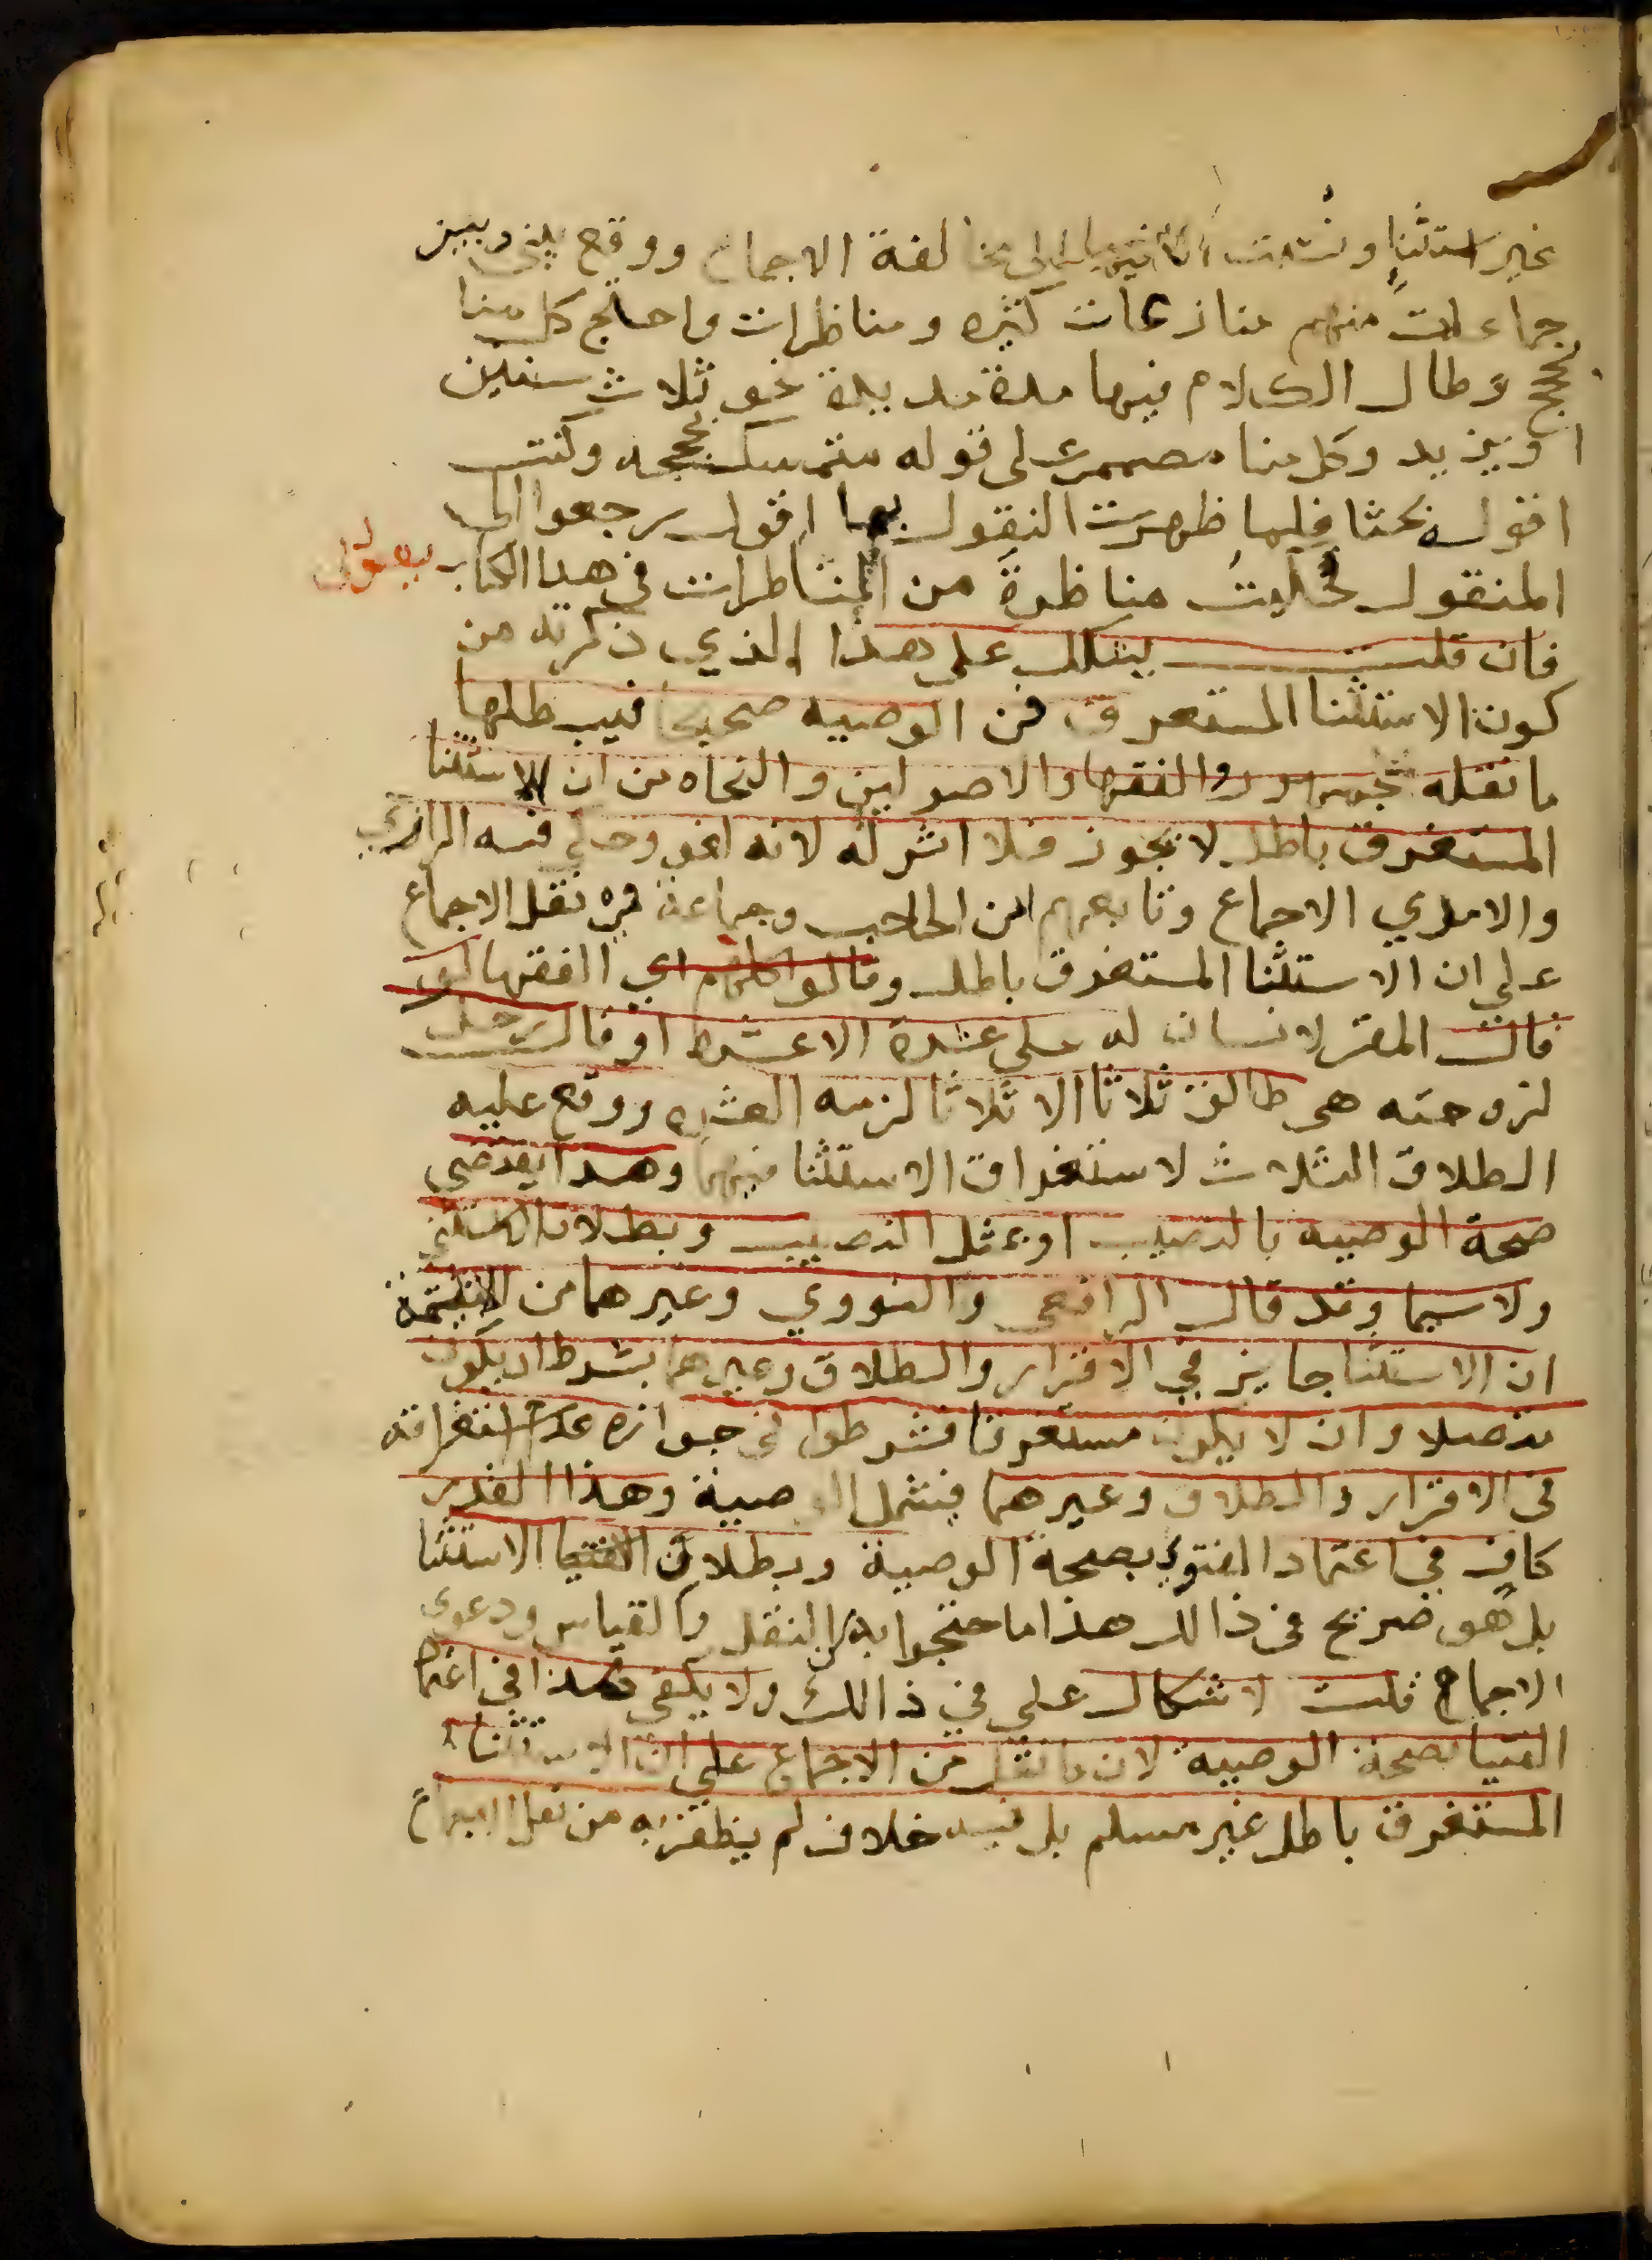 غير استثنا ونسبت الى مخالفة الاجماع ووقع بيني وبين
جماعات منهم منازعات كثيره ومناظرات واحتج كل منا
بحجج وطال الكلام فيها مدة مديدة نحو ثلاث سنين
او يزيد وكل منا مصمم على قوله متمسك بحججه وكنت
اقول بحثا فلما ظهرت النقول بما اقول رجعوا الى
المنقول فحكيت مناظرة من المناظرات في هذا الكتاب بقولي
فان قلت يشكل على هذا الذي ذكرته من
كون الاستثنا المستغرق في الوصيه صحيحا فيبطلها
ما نقله جمهور الفقها والاصوليين والنحاه من ان الاستثنا
المستغرق باطل لا يجوز فلا اثر له لانه لغو وحكى فيه الرازي
والامدي الاجماع وتابعهم ابن الحاجب وجماعة في نقل الاجماع
على ان الاستثنا المستغرق باطل وقالوا كلهم اي الفقها لو
قال المقر لانسان له علي عشرة الا عشره او قال رجل
لزوجته هي طالق ثلاثا الا ثلاثا لزمه العشره ووقع عليه
الطلاق الثلاث لاستغراق الاستثنا فيهما وهذا يقتضي
صحة الوصيه بالنصيب او بمثل النصيب وبطلان الاستثنى
ولا سيما وقد قال الرافعي والنووي وغيرهما من الائمة
ان الاستثنا جايز في الاقرار والطلاق وغيرهما بشرط ان يكون
متصلا وان لا يكون مستغرقا فشرطوا في جوازه عدم استغراقه
في الاقرار والطلاق وغيرهما فيشمل الوصية وهذا القدر
كاف في اعتماد الفتوى بصحة الوصية وبطلان الاستثنا
بل هو صريح في ذالك هذا ما احتجوا به من النقل والقياس ودعوى
الاجماع قلت لا شكال علي في ذالك ولا يكفي هذا في اعتماد
الفتيا بصحة الوصيه لان ما نقل من الاجماع على ان الاستثنا
المستغرق باطل غير مسلم بل فيه خلاف لم يظفر به من نقل الاجماع